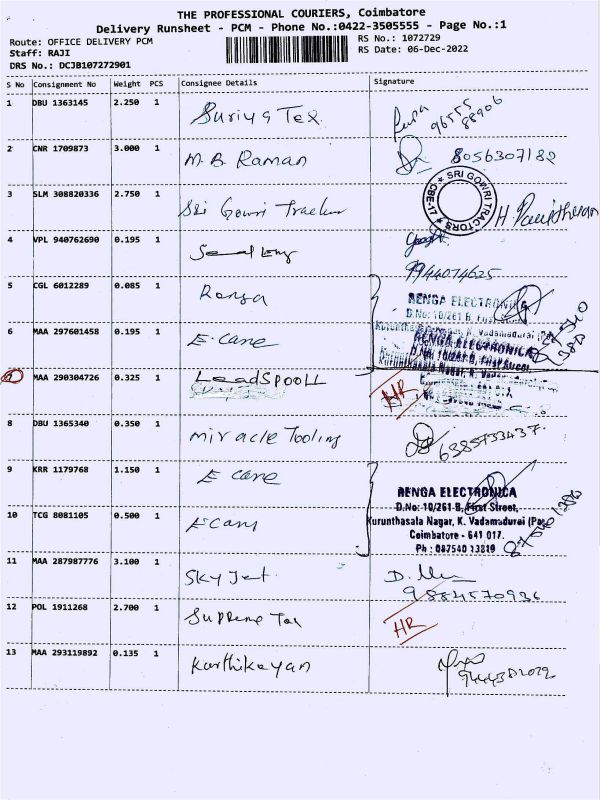 THE PROFESSIONAL COURIERS, Coimbatore
Delivery Runsheet - PCM - Phone No.:0422-3505555 - Page No.:1
Route: OFFICE DELIVERY PCM
RS No.: 1072729
Staff: RAJI
RS Date: 06-Dec-2022
DRS No.: DCJB107272901
S No Consignment No Weight PCS Consignee Details Signature
1 DBU 1363145 2.250 1 Suriya Tex
96555
88906
2 CNR 1709873 3.000 1 M.B Raman 8056307182
3 SLM 308820336 2.750 1 Sri Gowri Tractor
★ SRI GOWRI TRACTORS ★ CBE-17
4 VPL 940762690 0.195 1
9944074625
5 CGL 6012289 0.085 1 Renga
RENGA ELECTRONICA
D.No: 10/261 B, First Street
6 MAA 297601458 0.195 1 E-cane
RENGA ELECTRONICA
7 MAA 290304726 0.325 1 LeadSpooLL HR
8 DBU 1365340 0.350 1 miracle Tooling 6385733437
9 KRR 1179768 1.150 1 E cane
RENGA ELECTRONICA
D.No: 10/261-B, First Street,
Kurunthasala Nagar, K. Vadamadurai (Po)
10 TCG 8081105 0.500 1
Coimbatore - 641 017.
Ph : 087540 13819
11 MAA 287987776 3.100 1 Sky Jet
9884570936
12 POL 1911268 2.700 1 Supreme Tex HR
13 MAA 293119892 0.135 1 Karthikayan